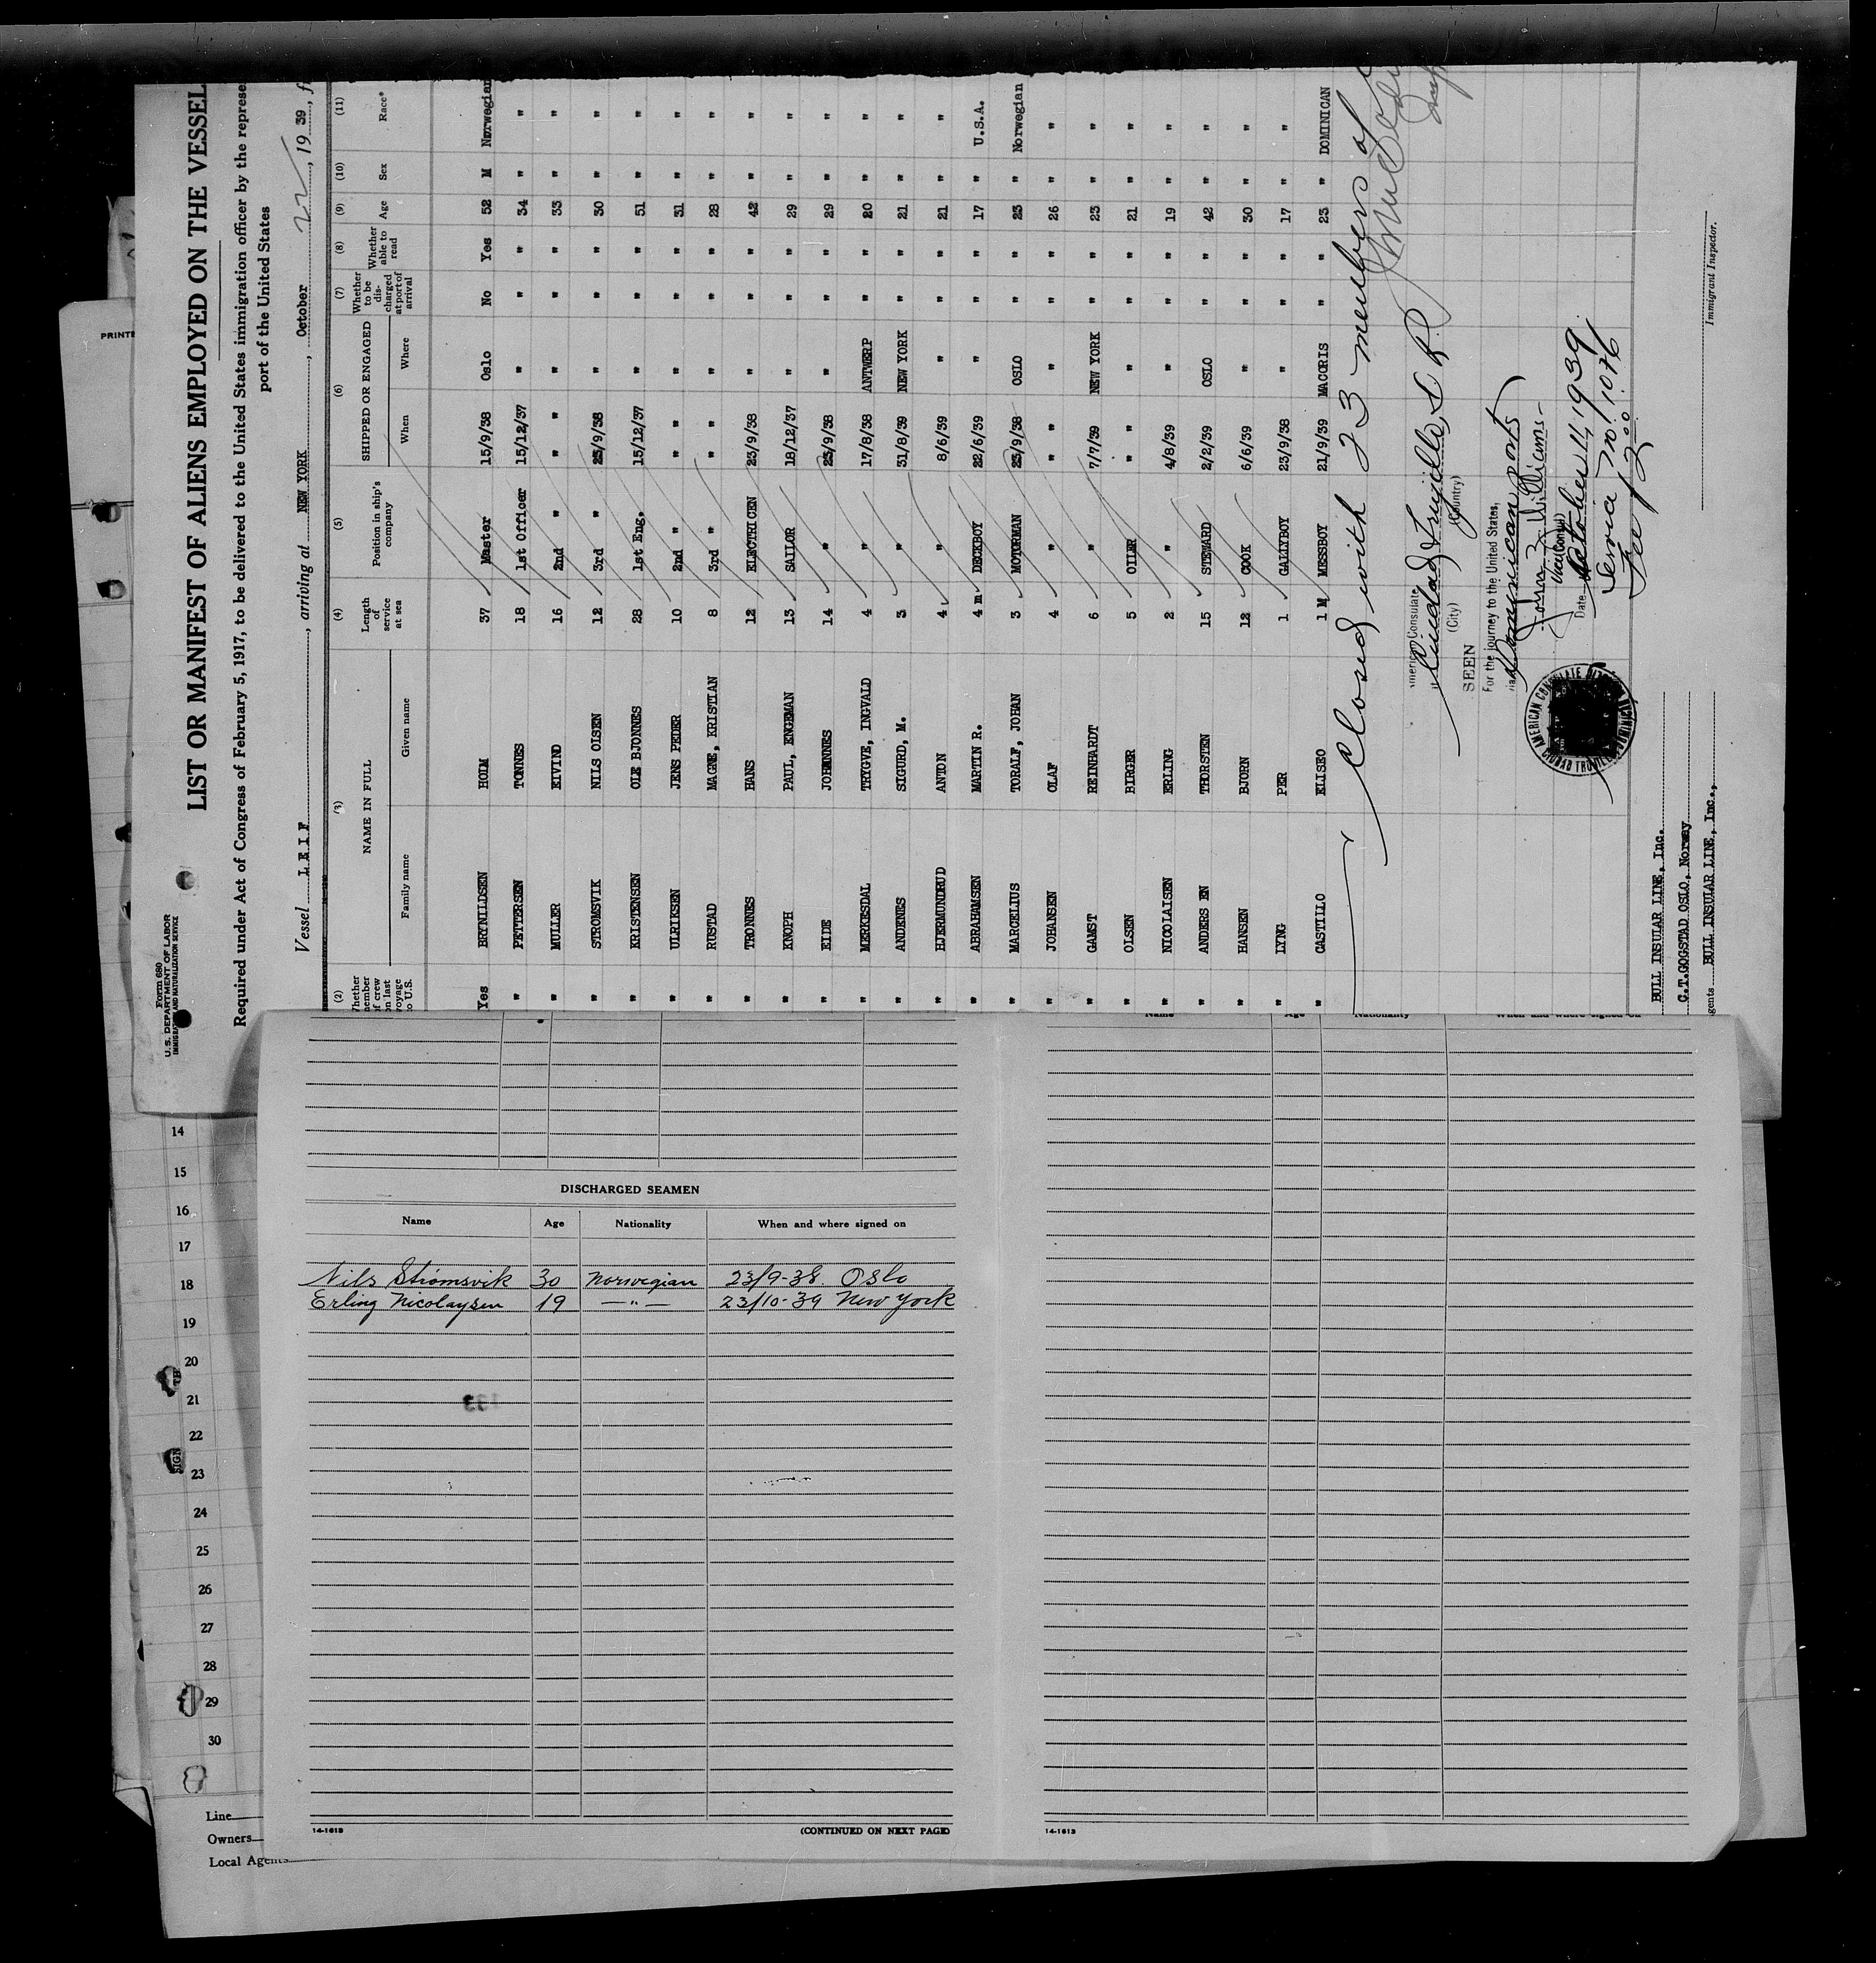 Form 680
U. S. DEPARTMENT OF LABOR
IMMIGRATION AND NATURALIZATION SERVICE
LIST OR MANIFEST OF ALIENS EMPLOYED ON THE VESSEL
Required under Act of Congress of February 5, 1917, to be delivered to the United States immigration officer by the represe
port of the United States
Vessel LEIF, arriving at NEW YORK, October 22, 19 39, f
(2) (3) (4) (5) (6) (7) (8) (9) (10) (11)
Whether member of crew on last voyage to U.S. NAME IN FULL Family name Given name Length of service at sea Position in ship's company SHIPPED OR ENGAGED When Where Whether to be discharged at port of arrival Whether able to read Age Sex Race*
Yes BRYNILDSEN HOIM 37 Master 15/9/38 Oslo No Yes 52 M Norwegian
" PETTERSEN TONNES 18 1st Officer 15/12/37 " " " 34 " "
" MULLER EIVIND 16 2nd " " " " " 33 " "
" STROMSVIK NILS OLSEN 12 3rd " 23/9/38 " " " 30 " "
" KRISTENSEN OLE BJONNES 28 1st Eng. 15/12/37 " " " 51 " "
" ULRIKSEN JENS PEDER 10 2nd " " " " " 31 " "
" RUSTAD MAGNE, KRISTIAN 8 3rd " " " " " 28 " "
" TRONNES HANS 12 ELECTRICEN 23/9/38 " " " 42 " "
" KNOPH PAUL, ENGEMAN 13 SAILOR 18/12/37 " " " 29 " "
" EIDE JOHANNES 14 " 23/9/38 " " " 29 " "
" MERKESDAL TRYGVE, INGVALD 4 " 17/8/38 ANTWERP " " 20 " "
" ANDENES SIGURD, M. 3 " 31/8/39 NEW YORK " " 21 " "
" HJERMUNDRUD ANTON 4 " 8/6/39 " " " 21 " "
" ABRAHAMSEN MARTIN R. 4 m DECKBOY 22/6/39 " " " 17 " U.S.A.
" MARCELIUS TORALF, JOHAN 3 MOTORMAN 23/9/38 OSLO " " 23 " Norwegian
" JOHANSEN OLAF 4 " " " " " 26 " "
" GAMST REINHARDT 6 " 7/7/39 NEW YORK " " 23 " "
" OLSEN BIRGER 5 OILER " " " " 21 " "
" NICOLAISEN ERLING 2 " 4/8/39 " " " 19 " "
" ANDERS EN THORSTEN 15 STEWARD 2/2/39 OSLO " " 42 " "
" HANSEN BJORN 12 COOK 6/6/39 " " " 30 " "
" LYNG PER 1 GALLYBOY 23/9/38 " " " 17 " "
" CASTILLO ELISEO 1 M MESSBOY 21/9/39 MACORIS " " 23 " DOMINICAN
Closed with 23 members of
American Consulate
Ciudad Trujillo, D. R.
(City) (Country)
SEEN
For the journey to the United States,
via Dominican ports
John Williams
Vice Consul
Date October 14, 1939
Service No. 1046
Fee $2.00
AMERICAN CONSULATE
CIUDAD TRUJILLO
BULL INSULAR LINE, Inc.
C.T.GOGSTAD OSLO, Norway
gents BULL INSULAR LINE, Inc.,
Immigrant Inspector.
PRINTE
14
15
16
17
18
19
20
21
22
23
24
25
26
27
28
29
30
SIGN
Line
Owners
Local Agents
DISCHARGED SEAMEN
Name Age Nationality When and where signed on
Nils Strömsvik 30 Norwegian 23/9-38. Oslo
Erling Nicolaysen 19 — " — 23/10-39 New York
14-1613
(CONTINUED ON NEXT PAGE)
Name Age Nationality When and where signed on
14-1613